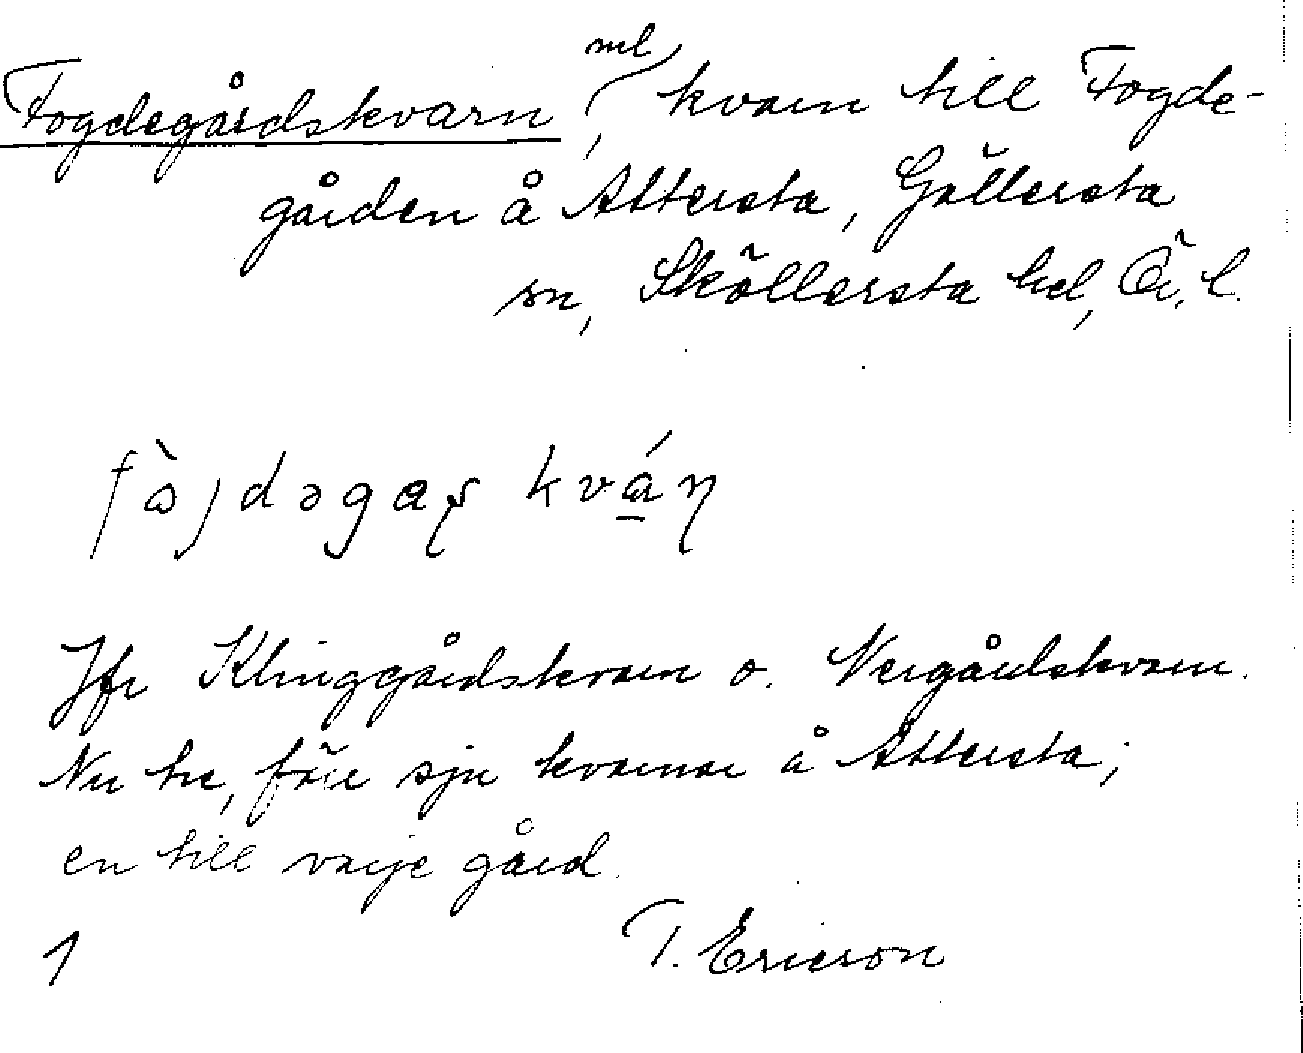 Fogdegårdskvarn, ml kvarn till Fogde-
gården å Attersta, Gällersta
sn, Sköllersta hd, Ör. l.
fòjdəgaʂ kváɳ
Jfr Klinggårdskvarn o. Nergårdskvarn.
Nu tre, förr sju kvarnar å Attersta;
en till varje gård.
1 T. Ericson